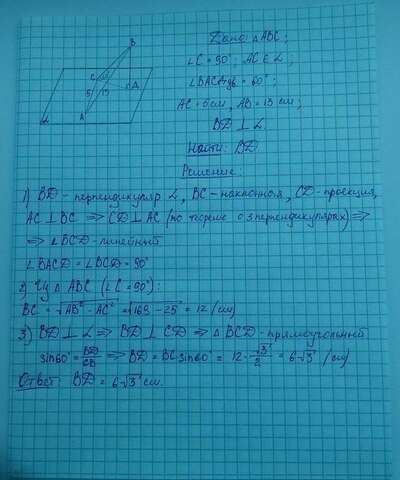 B
C
D
5
A
α
Дано: △ABC;
∠C = 90°; AC ∈ α;
∠BACD = 60°;
AC = 5см, AB = 13 см;
BD ⊥ α
Найти: BD
Решение:
1) BD - перпендикуляр α, BC - наклонная, CD - проекция,
AC ⊥ BC ⟹ CD ⊥ AC (по теореме о 3 перпендикулярах) ⟹
⟹ ∠BCD - линейный
∠BACD = ∠BCD = 90°
2) Из △ ABC (∠C = 90°):
BC = √AB² - AC² = √169 - 25 = 12 (см)
3) BD ⊥ α ⟹ BD ⊥ CD ⟹ △ BCD - прямоугольный
sin60° = BD/CB ⟹ BD = BC sin60° = 12 · √3/2 = 6√3 (см)
Ответ: BD = 6√3 см.